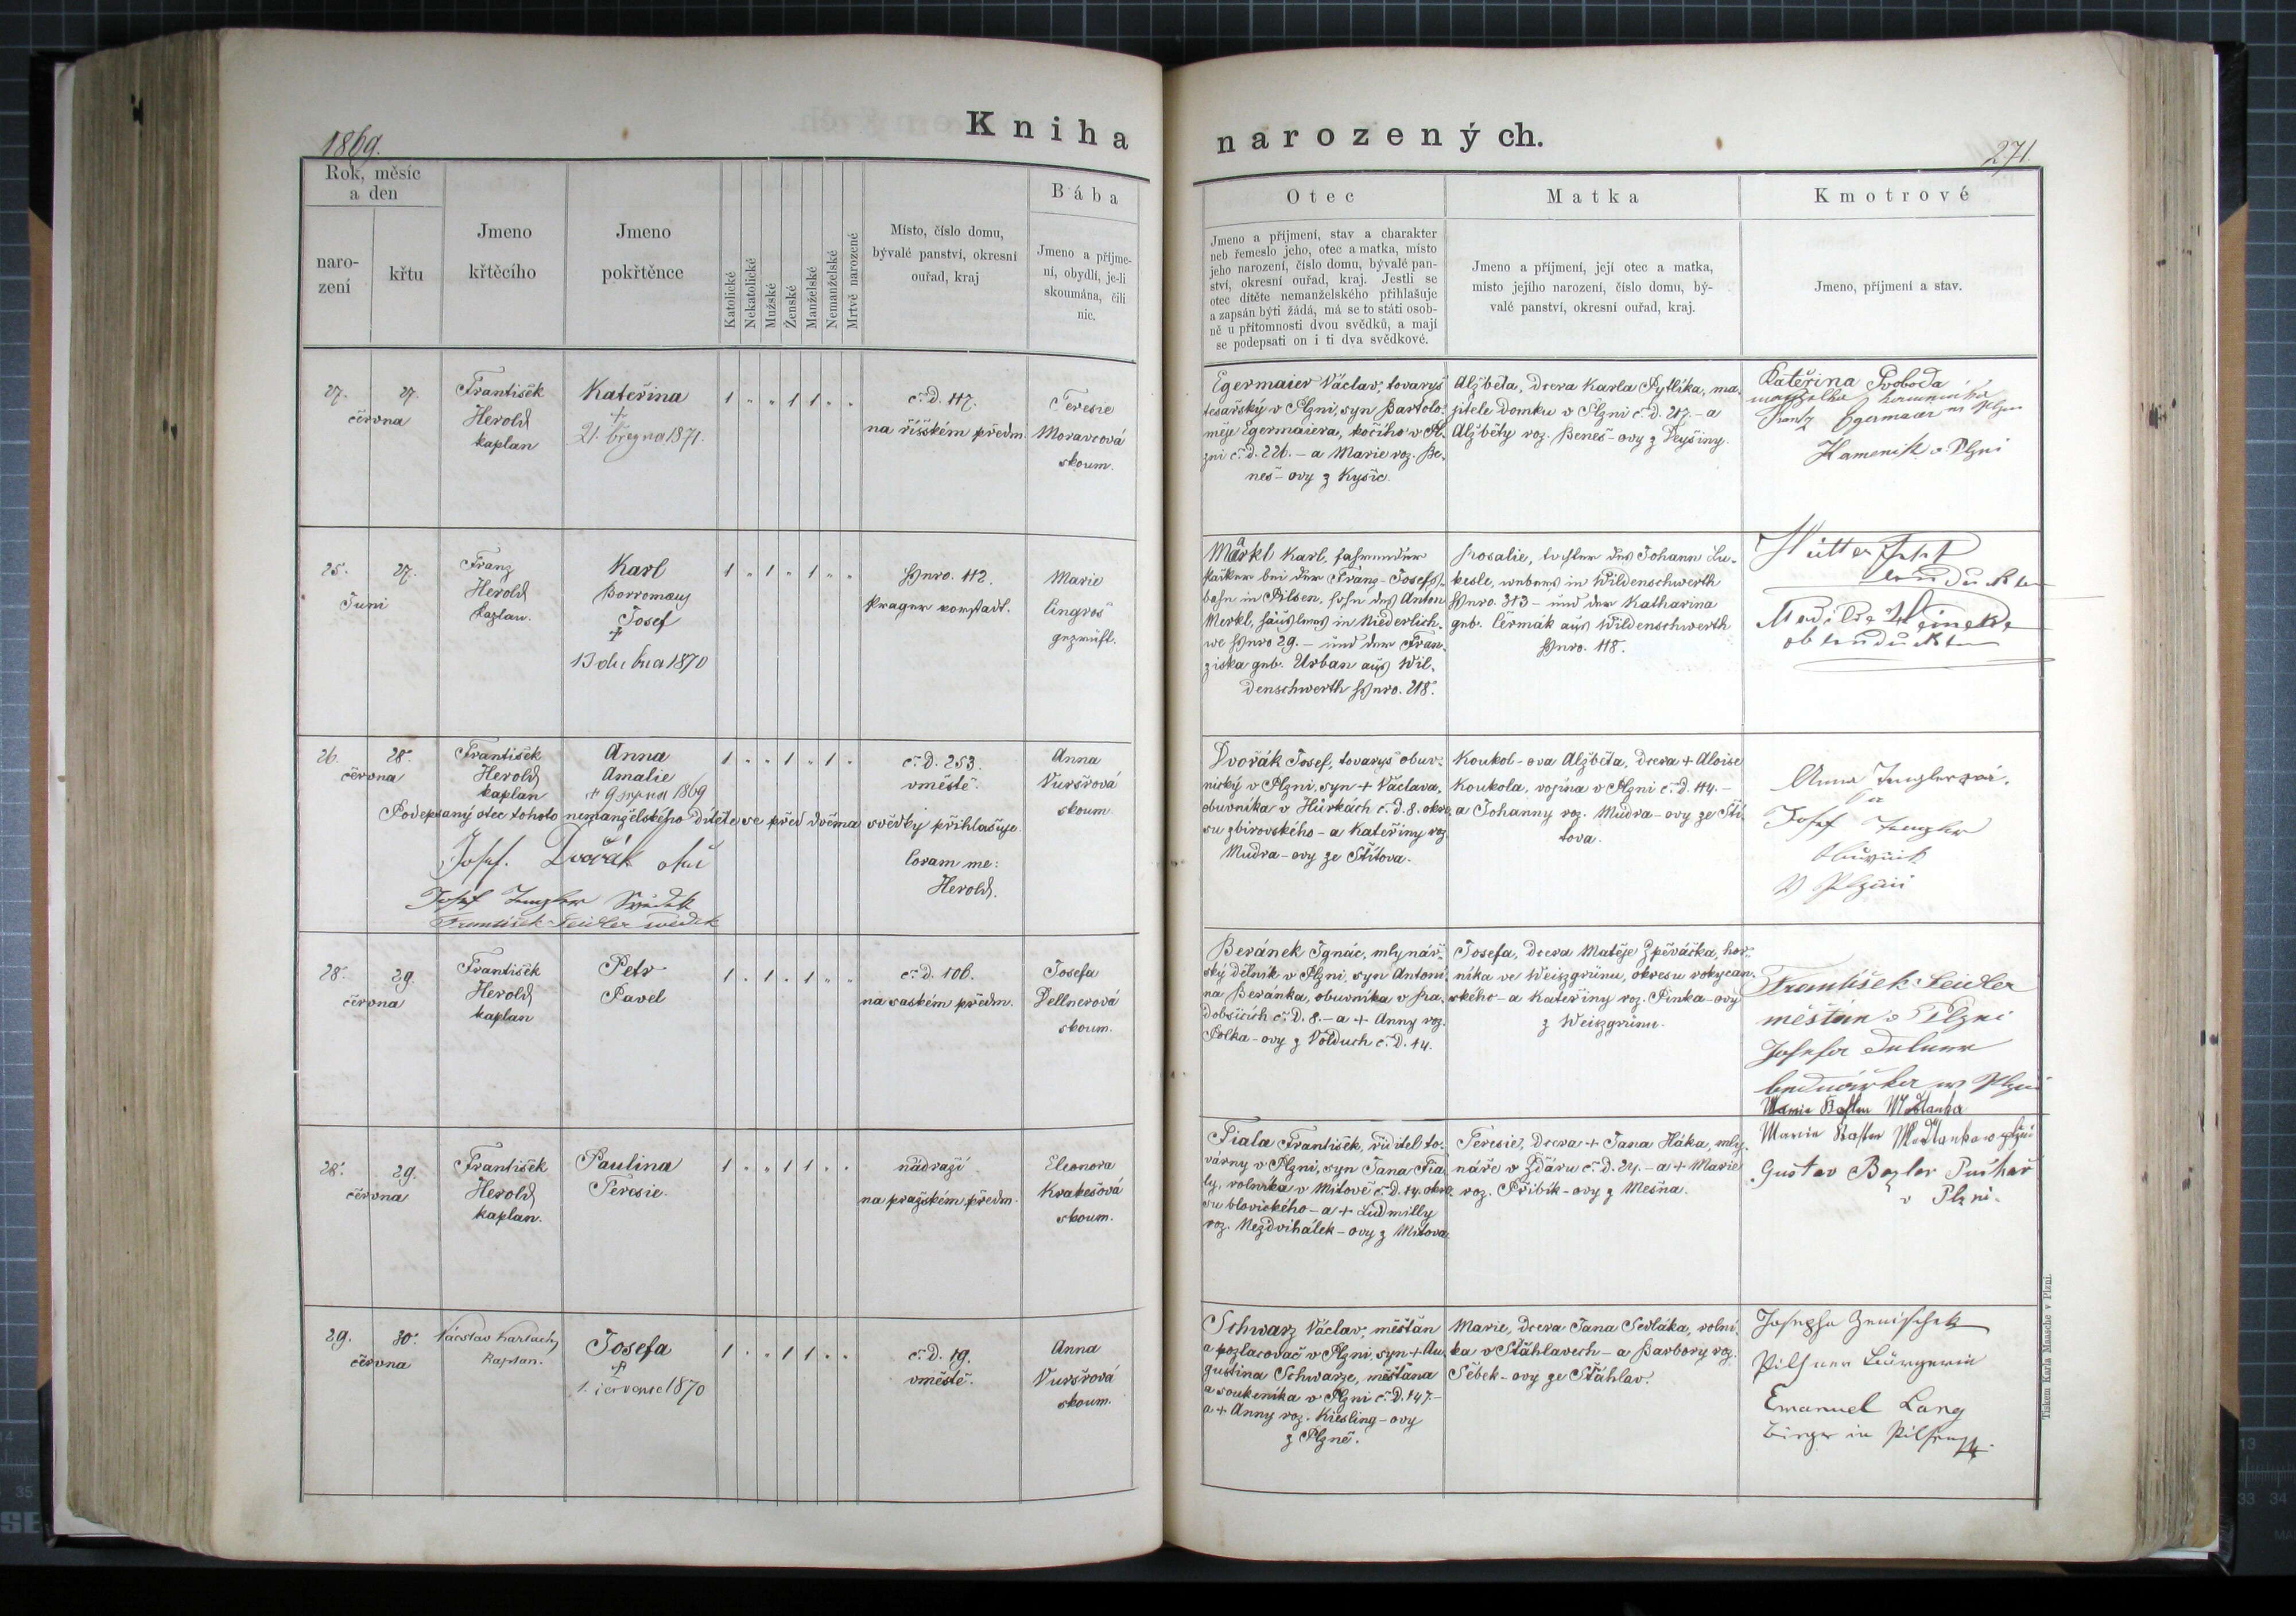 1869.
Kniha
narozených.
271.
Rok, měsíc
a den
naro-
zení
křtu
Jmeno
křtěcího
Jmeno
pokřtěnce
Katolické
Nekatolické
Mužské
Ženské
Manželské
Nemanželské
Mrtvě narozené
Místo, číslo domu,
bývalé panství, okresní
ouřad, kraj
Bába
Jmeno a příjme-
ní, obydlí, je-li
skoumána, čili
nic.
Otec
Jmeno a příjmení, stav a charakter
neb řemeslo jeho, otec a matka, místo
jeho narození, číslo domu, bývalé pan-
ství, okresní ouřad, kraj. Jestli se
otec dítěte nemanželského přihlašuje
a zapsán býti žádá, má se to státi osob-
ně u přítomnosti dvou svědků, a mají
se podepsati on i ti dva svědkové.
Matka
Jmeno a příjmení, její otec a matka,
místo jejího narození, číslo domu, bý-
valé panství, okresní ouřad, kraj.
Kmotrové
Jmeno, příjmení a stav.
27. 27.
června
František
Herold
kaplan
Kateřina
+
21. března 1871.
1 " " 1 1 " "
č. d. 117.
na říšském předm.
Teresie
Moravcová
skoum.
Egermaier Václav, tovaryš
tesařský v Plzni, syn Bartolo-
měje Egermaiera, kočího v Pl-
zni č. d. 226. – a Marie roz. Be-
neš-ovy z Kyšic.
Alžběta, dcera Karla Pytlíka, ma-
jitele domku v Plzni č. d. 217. – a
Alžběty roz. Beneš-ovy z Dejšiny.
Kateřina Svoboda
manželka kameníka
Franz Egermaar
Kameník v Plzni
25. 27.
Juni
Franz
Herold
Kaplan.
Karl
Borromeus
Josef
+
13 dubna 1870
1 " 1 " 1 " "
Hsnro. 112.
Prager vorstadt.
Marie
Cingroš
geprüft.
Märkl Karl, fahrender
Packer bei der Franz-Josefs-
bahn in Pilsen, sohn des Anton
Merkl, häuslers in Niederlich-
we Hsnro 29. – und der Fran-
ziska geb. Urban aus Wil-
denschwerth Hsnro. 218.
Rosalie, tochter des Johann Lu-
kesle, webers in Wildenschwerth
Hsnro. 313 – und der Katharina
geb. Čermák aus Wildenschwerth
Hsnro. 118.
26. 28.
června
František
Herold
kaplan
Anna
Amalie
+ 9 srpna 1869
1 " " 1 " 1 "
č. d. 253.
v městě.
Anna
Vuršrová
skoum.
Podepsaný otec tohoto nemanželského dítěte se před dvěma svědky přihlašuje.
Josef. Dvořák otec
Coram me:
Herold.
Josef Zengler Svědek
František Seidler svědek
Dvořák Josef, tovaryš obuv-
nický v Plzni, syn + Václava,
obuvníka v Hůrkách č. d. 8. okre-
su zbirovského – a Kateřiny roz.
Mudra-ovy ze Štítova.
Koukol-ova Alžběta, dcera + Aloise
Koukola, vojína v Plzni č. d. 114. –
a Johanny roz. Mudra-ovy ze Ští-
tova.
Anna Zenglerová.
Josef Zengler
Obuvník
V Plznii
28. 29.
června
František
Herold
kaplan
Petr
Pavel
1 " 1 " 1 " "
č. d. 106.
na saském předm.
Josefa
Dellnerová
skoum.
Beránek Ignác, mlynář-
ský dělník v Plzni, syn Antoní-
na Beránka, obuvníka v Ra-
dobšicích č. d. 8. – a + Anny roz.
Polka-ovy z Volduch č. d. 14.
Josefa, dcera Matěje Zpěváčka, hor-
níka ve Weiszgrünu, okresu rokycan-
ského – a Kateřiny roz. Pinka-ovy
z Weiszgrünu.
František Seidler
měštan v Plzni
Josefa
bednářka w Plzni
28. 29.
června
František
Herold
kaplan.
Paulina
Teresie.
1 " " 1 1 " "
nádraží
na pražském předm.
Eleonora
Krakešová
skoum.
Fiala František, ředitel to-
várny v Plzni, syn Jana Fia-
ly, rolníka v Mítově č. d. 14. okre-
su blovického – a + Ludmilly
roz. Nezdvihálek-ovy z Mítova.
Teresie, dcera + Jana Háka, mly-
náře v Žďáru č. d. 24. – a + Marie
roz. Přibík-ovy z Mešna.
Gustav Bazler Puškař
v Plzni.
29. 30.
června
Václav Karlach,
Kaplan.
Josefa
+
1. července 1870
1 " " 1 1 " "
č. d. 19.
v městě.
Anna
Vuršrová
skoum.
Schwarz Václav, měštan
a pozlacovač v Plzni, syn + Au-
gustina Schwarze, měštana
a soukeníka v Plzni č. d. 147. –
a + Anny roz. Kiesling-ovy
z Plzně.
Marie, dcera Jana Sedláka, rolní-
ka v Šťáhlavech – a Barbory roz.
Šebek-ovy ze Šťáhlav.
Pilsner Bürgerin
Emanuel Lang
Bürger in Pilsen
Tiskem Karla Maasche v Plzni.